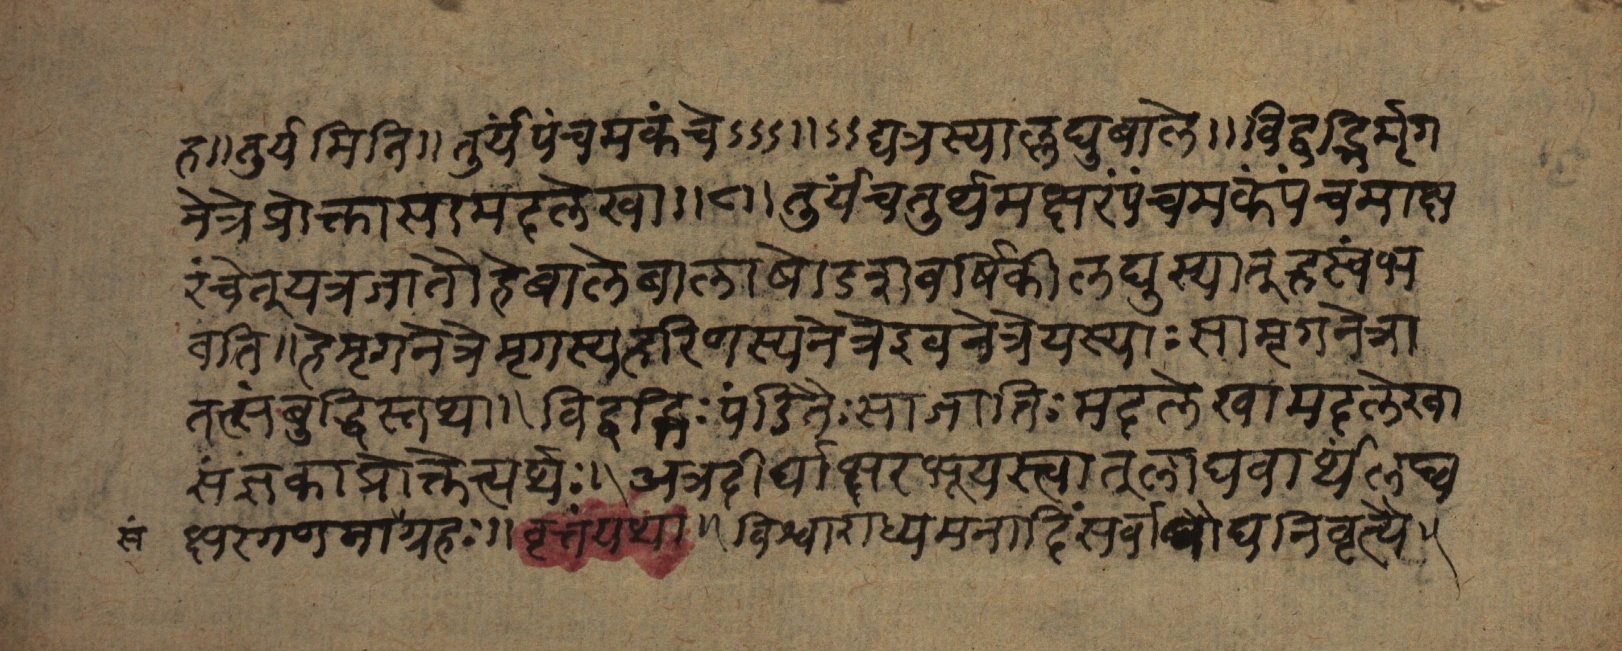 ह॥तुर्यमिति॥तुर्यंपंचमकंचेऽऽऽ॥ऽऽद्यत्रस्याल्लघुबाले॥विद्वद्भिर्मृग
नेत्रेप्रोक्तासामदलेखा॥८॥तुर्यंचतुर्थमक्षरंपंचमकंपंचमाक्ष
रंचेत्यत्रजातौहेबालेबालाषोडशवर्षिकीलघुस्यात्ह्रस्वंभ
वति॥हेमृगनेत्रेमृगस्यहरिणस्यनेत्रेइवनेत्रेयस्याःसामृगनेत्रा
तत्संबुद्धिस्तथा॥विद्वद्भिःपंडितैःसाजातिःमदलेखामदलेखा
संज्ञकाप्रोक्तेत्यर्थः॥अत्रदीर्घाक्षरभूयस्त्वात्लाघवार्थंलघ्व
क्षरगणनाग्रहः॥वृत्तंयथा॥विश्वाराध्यमनादिंसर्वाघौघनिवृत्यै॥